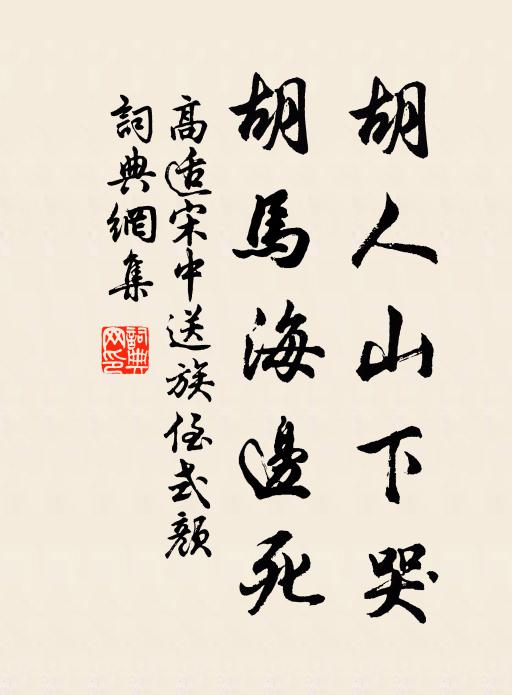 胡人山下哭
胡馬海邊死
高适宋中送族侄式顏
詞典網集
詞典网印